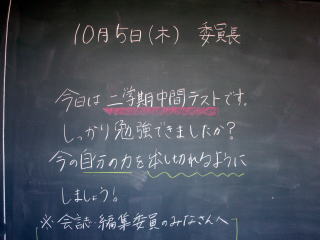 10月5日(木) 委員長
今日は二学期中間テストです。
しっかり勉強できましたか?
今の自分の力を出し切れるように
しましょう!
※会誌・編集委員のみなさんへ